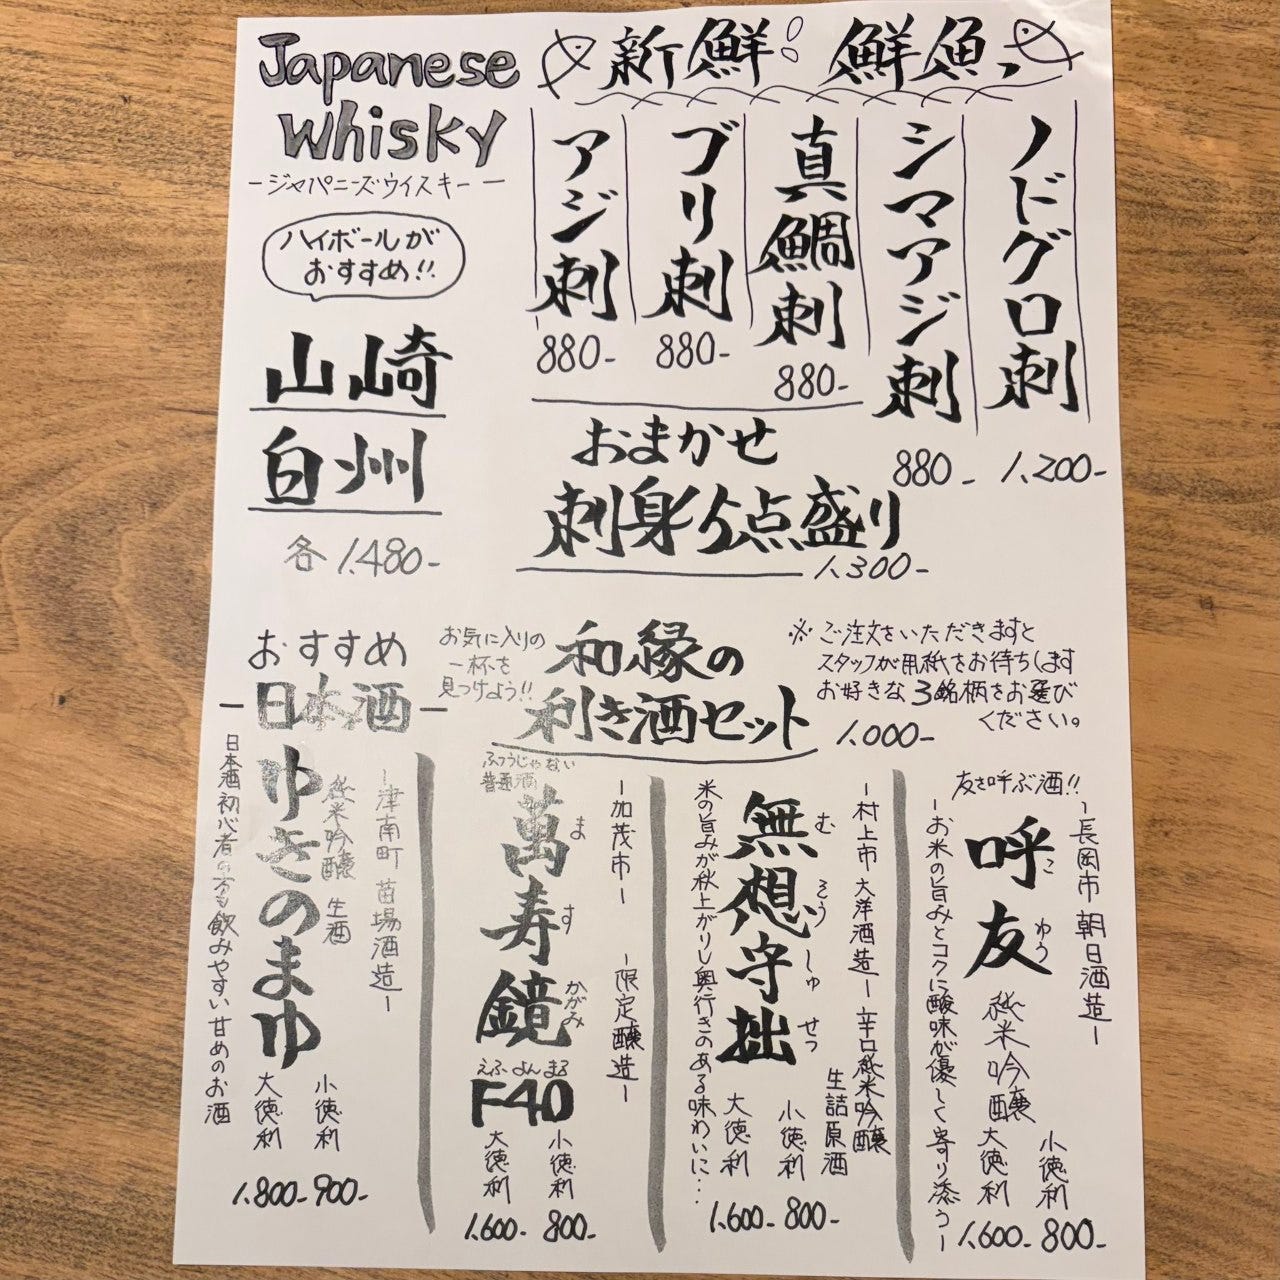 Japanese
Whisky
ージャパニーズウイスキーー
ハイボールが
おすすめ!!
山崎
白州
各 1,480-
新鮮 鮮魚
ノドグロ刺
1,200-
シマアジ刺
880-
真鯛刺
880-
ブリ刺
880-
アジ刺
880-
おまかせ
刺身5点盛り
1,300-
お気に入りの
一杯を
見つけよう!!
和縁の
利き酒セット
1,000-
※ご注文をいただきますと
スタッフが用紙をお待ちします
お好きな3銘柄をお選び
ください。
おすすめ
ー日本酒ー
友を呼ぶ酒!!
ー長岡市 朝日酒造ー
呼友
こ ゆう
純米吟醸
ーお米の旨みとコクに酸味が優しく寄り添うー
小徳利
800-
大徳利
1,600-
ー村上市 大洋酒造ー 辛口純米吟醸
生詰原酒
無想守拙
む そう しゅ せつ
米の旨みが秋上がりし奥行きのある味わいに…
小徳利
800-
大徳利
1,600-
ふつうじゃない
普通酒
ー加茂市ー ー限定醸造ー
萬寿鏡
ま す かがみ
えふ よん まる
F40
小徳利
800-
大徳利
1,600-
ー津南町 苗場酒造ー
純米吟醸 生酒
ゆきのまゆ
日本酒初心者の方も飲みやすい甘めのお酒
小徳利
900-
大徳利
1,800-